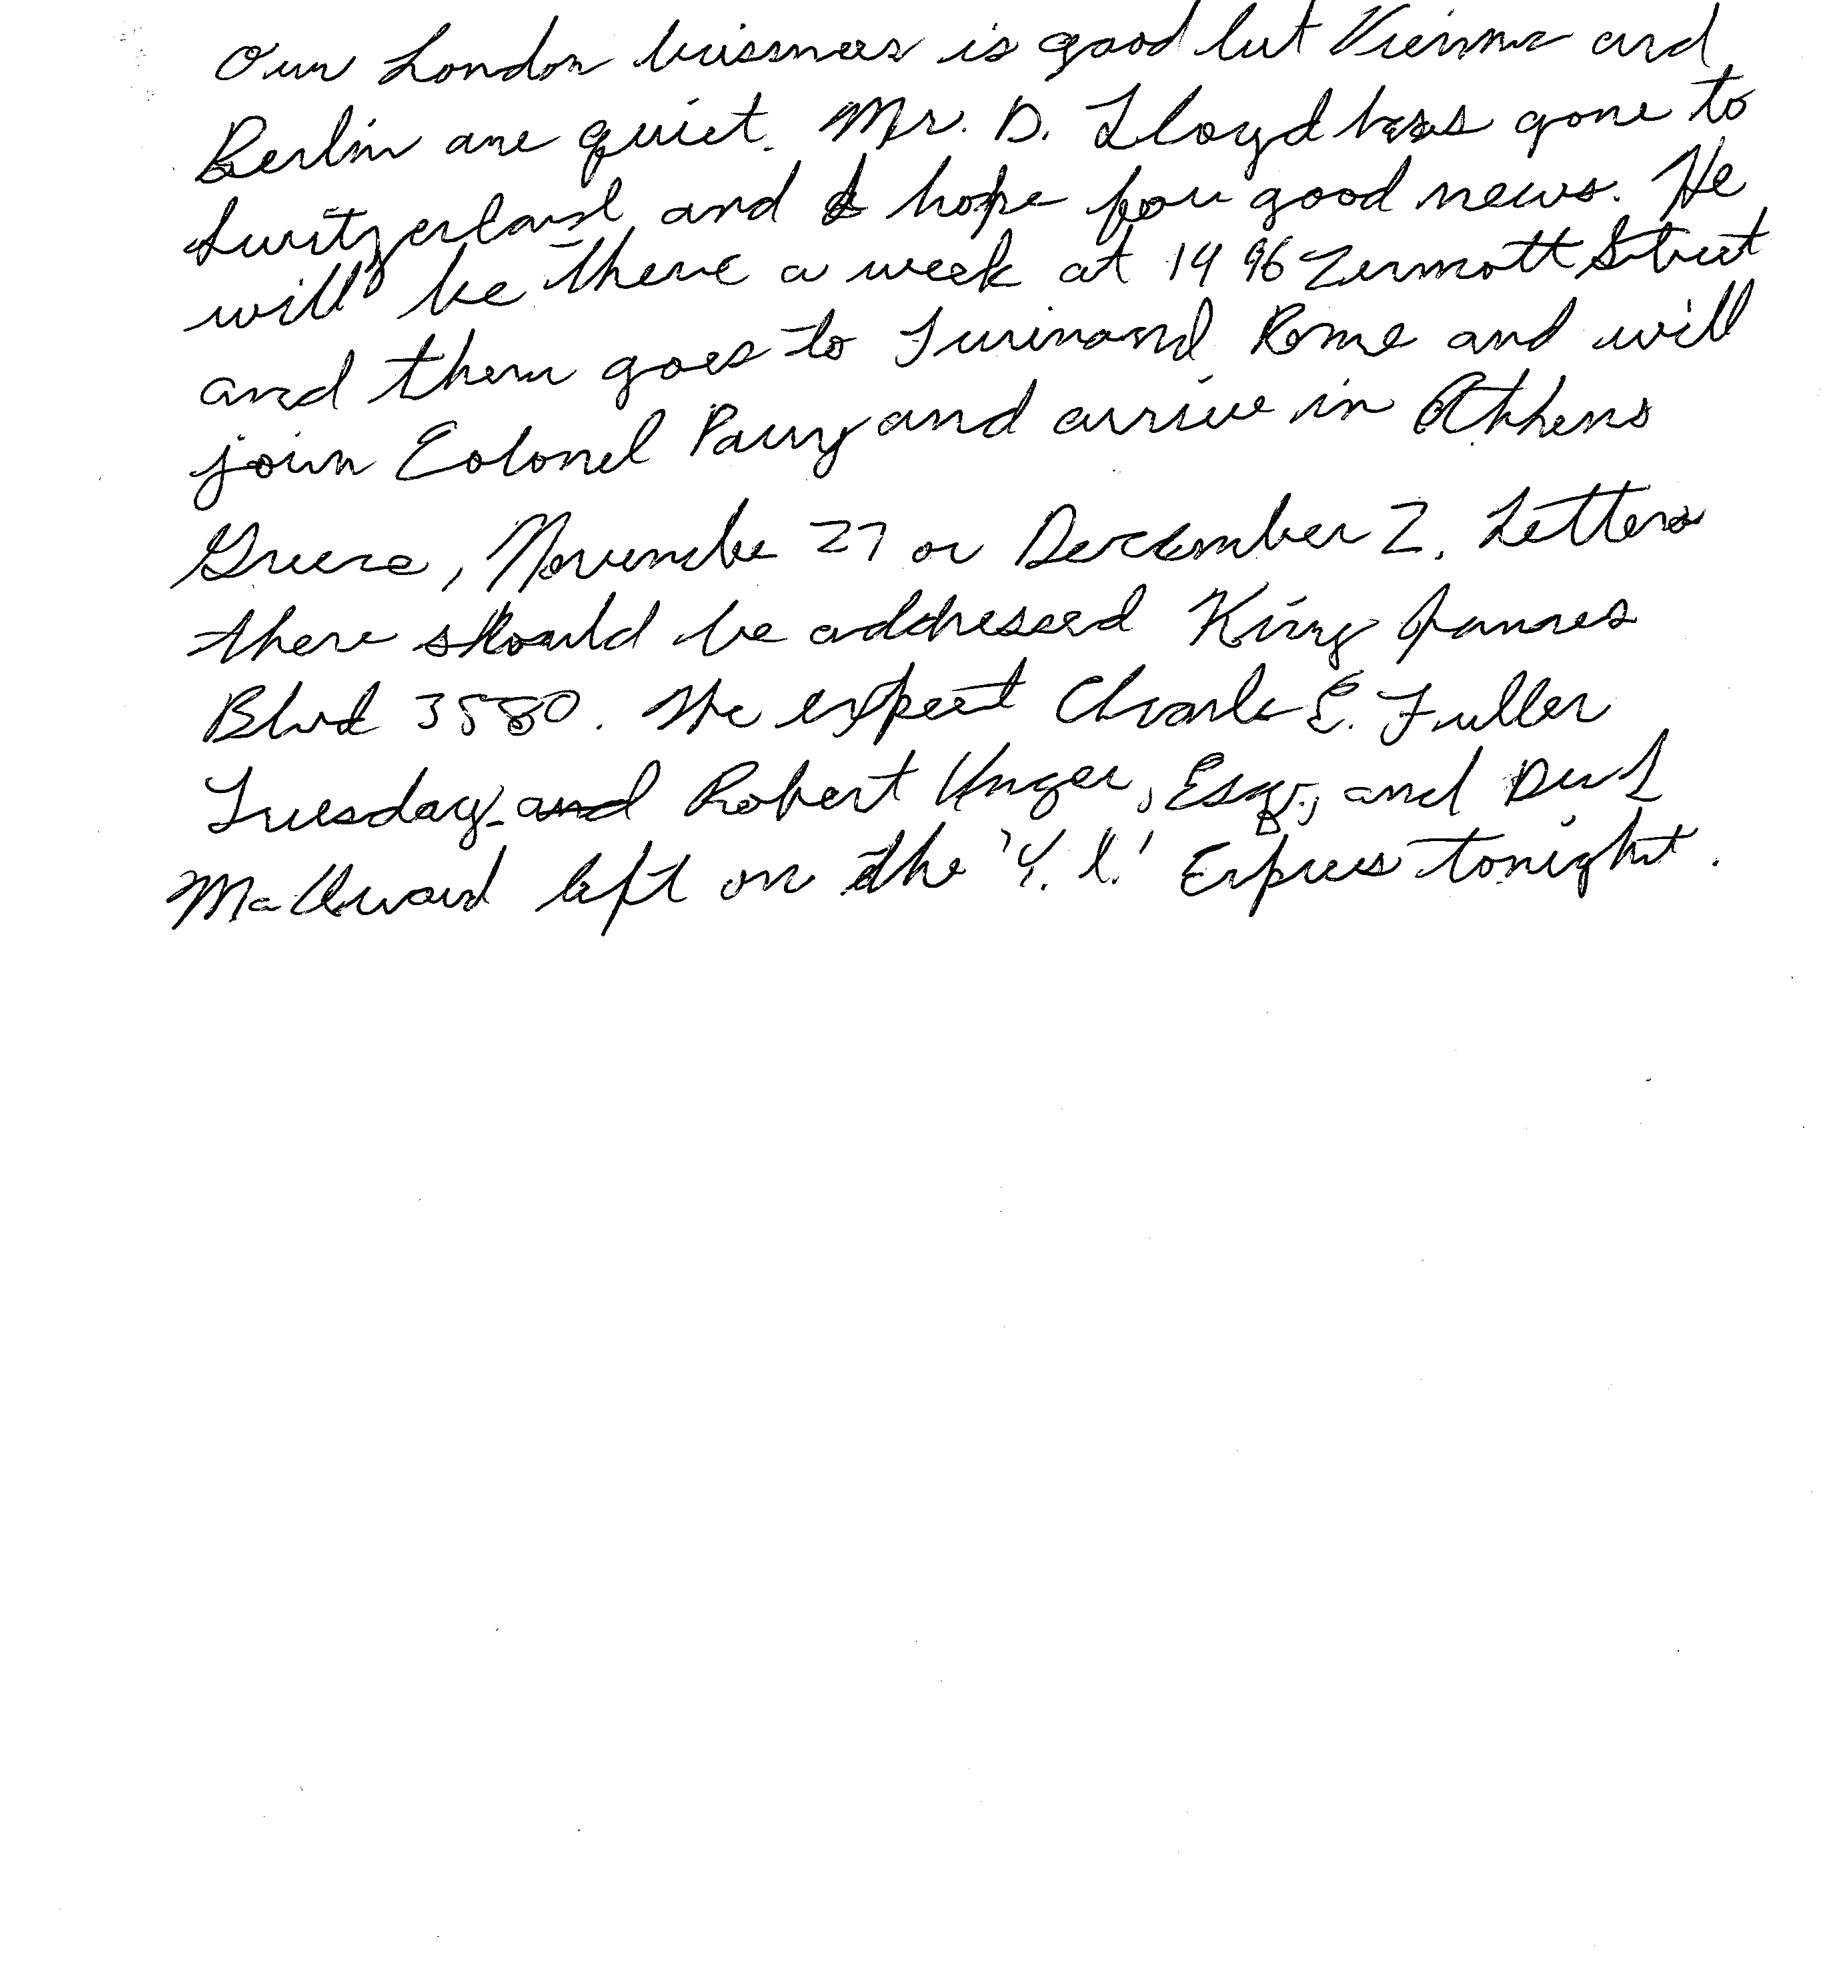 Our London buisness is good but Vienna and
Berlin are quiet. Mr. D. Lloyd has gone to
Switzerland and I hope for good news. He
will be there a week at 1496 Zermott Street
and then goes to Turin and Rome and will
join Colonel Parry and arrive in Athens
Greece, November 27 or December 2. Letters
there should be addressed King James
Blvd 3580. We expect Charles E. Fuller
Tuesday and Robert Unger, Esq., and Dr L
left on the 'Y. X.' Express tonight.